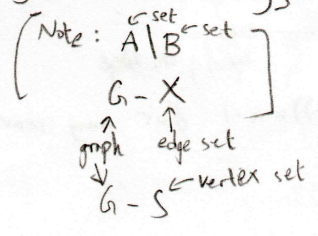 set
[Note: A \ B set]
G - X
graph edge set
G - S vertex set